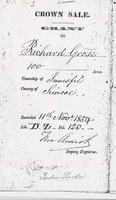 CROWN SALE.
GRANT
TO
Richard Grose
100 Acres
Township of Innisfil
County of Simcoe.
Recorded 11th Novr. 1854
Lib. D.Z. Fol. 120.
Deputy Registrar.